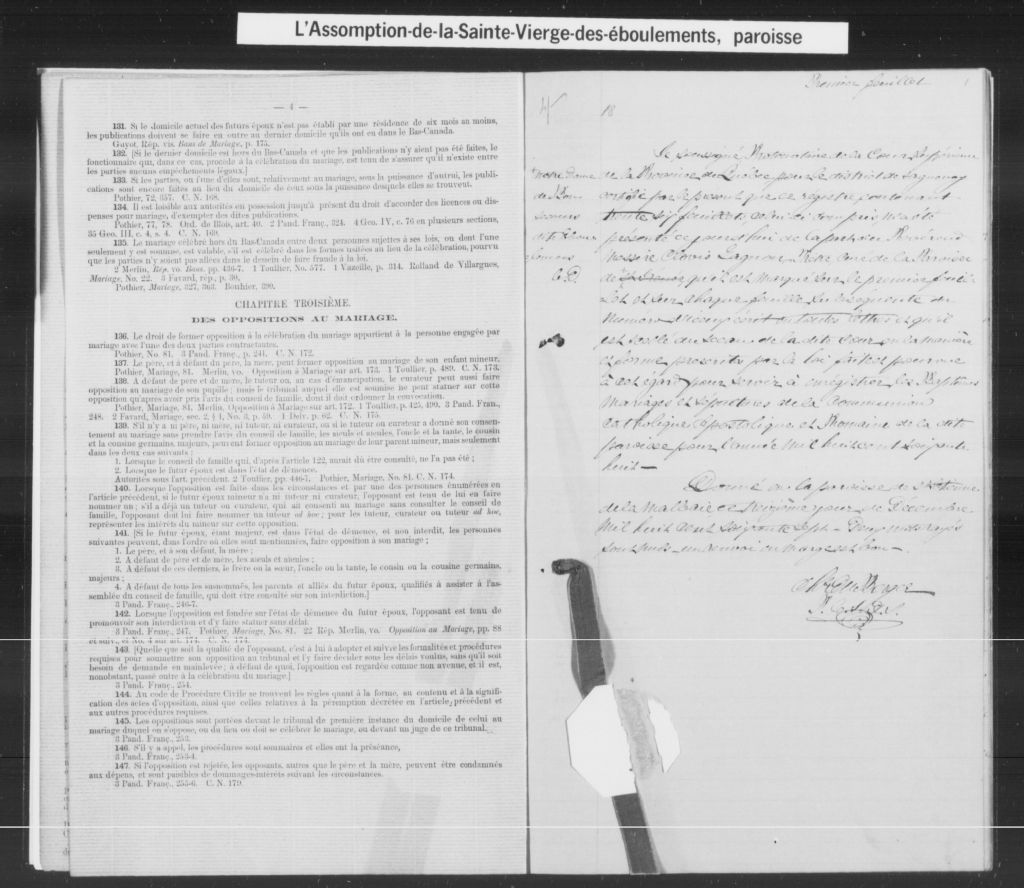 L'Assomption-de-la-Sainte-Vierge-des-éboulements, paroisse
— 4 —
131. Si le domicile actuel des futurs époux n'est pas établi par une résidence de six mois au moins,
les publications doivent se faire en outre au dernier domicile qu'ils ont eu dans le Bas-Canada.
Guyot, Rép. vis. Bans de Mariage, p. 175.
132. [Si le dernier domicile est hors du Bas-Canada et que les publications n'y aient pas été faites, le
fonctionnaire qui, dans ce cas, procède à la célébration du mariage, est tenu de s'assurer qu'il n'existe entre
les parties aucuns empêchements légaux.]
133. Si les parties, ou l'une d'elles sont, relativement au mariage, sous la puissance d'autrui, les publi-
cations sont encore faites au lieu du domicile de ceux sous la puissance desquels elles se trouvent.
Pothier, 72, 357. C. N. 168.
134. Il est loisible aux autorités en possession jusqu'à présent du droit d'accorder des licences ou dis-
penses pour mariage, d'exempter des dites publications.
Pothier, 77, 78. Ord. de Blois, art. 40. 2 Pand. Franç., 324. 4 Geo. IV, c. 76 en plusieurs sections,
35 Geo. III, c. 4, s. 4. C. N. 169.
135. Le mariage célébré hors du Bas-Canada entre deux personnes sujettes à ses lois, ou dont l'une
seulement y est soumise, est valable, s'il est célébré dans les formes usitées au lieu de la célébration, pourvu
que les parties n'y soient pas allées dans le dessein de faire fraude à la loi.
2 Merlin, Rép. vo. Bans. pp. 436-7. 1 Toullier, No. 577. 1 Vazeille, p. 314. Rolland de Villargues,
Mariage, No. 22. 3 Favard, rép., p. 30.
Pothier, Mariage, 327, 363. Bouhier, 399.
CHAPITRE TROISIÈME.
DES OPPOSITIONS AU MARIAGE.
136. Le droit de former opposition à la célébration du mariage appartient à la personne engagée par
mariage avec l'une des deux parties contractantes.
Pothier, No. 81. 3 Pand. Franç., p. 241. C. N. 172.
137. Le père, et à défaut du père, la mère, peut former opposition au mariage de son enfant mineur.
Pothier, Mariage, 81. Merlin, vo. Opposition à Mariage sur art. 173. 1 Toullier, p. 489. C. N. 173.
138. A défaut de père et de mère, le tuteur ou, au cas d'émancipation, le curateur peut aussi faire
opposition au mariage de son pupille ; mais le tribunal auquel elle est soumise ne peut statuer sur cette
opposition qu'après avoir pris l'avis du conseil de famille, dont il doit ordonner la convocation.
Pothier, Mariage, 81. Merlin, Opposition à Mariage sur art. 172. 1 Toullier, p. 425, 490. 3 Pand. Fran.,
248. 2 Favard, Mariage, sec. 2, § 1, No. 3, p. 59. 1 Delv. p. 62. C. N. 175.
139. S'il n'y a ni père, ni mère, ni tuteur, ni curateur, ou si le tuteur ou curateur a donné son consen-
tement au mariage sans prendre l'avis du conseil de famille, les aïeuls et aïeules, l'oncle et la tante, le cousin
et la cousine germains, majeurs, peuvent former opposition au mariage de leur parent mineur, mais seulement
dans les deux cas suivants :
1. Lorsque le conseil de famille qui, d'après l'article 122, aurait dû être consulté, ne l'a pas été ;
2. Lorsque le futur époux est dans l'état de démence.
Autorités sous l'art. précédent. 2 Toullier, pp. 446-7. Pothier, Mariage, No. 81. C. N. 174.
140. Lorsque l'opposition est faite dans les circonstances et par une des personnes énumérées en
l'article précédent, si le futur époux mineur n'a ni tuteur ni curateur, l'opposant est tenu de lui en faire
nommer un ; s'il a déjà un tuteur ou curateur, qui ait consenti au mariage sans consulter le conseil de
famille, l'opposant doit lui faire nommer un tuteur ad hoc ; pour les tuteur, curateur ou tuteur ad hoc,
représenter les intérêts du mineur sur cette opposition.
141. [Si le futur époux, étant majeur, est dans l'état de démence, et non interdit, les personnes
suivantes peuvent, dans l'ordre où elles sont mentionnées, faire opposition à son mariage ;
1. Le père, et à son défaut, la mère ;
2. A défaut de père et de mère, les aïeuls et aïeules ;
3. A défaut de ces derniers, le frère ou la sœur, l'oncle ou la tante, le cousin ou la cousine germains,
majeurs ;
4. A défaut de tous les susnommés, les parents et alliés du futur époux, qualifiés à assister à l'as-
semblée du conseil de famille, qui doit être consulté sur son interdiction.]
3 Pand. Franç., 246-7.
142. Lorsque l'opposition est fondée sur l'état de démence du futur époux, l'opposant est tenu de
promouvoir son interdiction et d'y faire statuer sans délai.
3 Pand. Franç., 247. Pothier, Mariage, No. 81. 22 Rép. Merlin, vo. Opposition au Mariage, pp. 88
et suiv., et No. 4 sur art. 174. C. N. 174.
143. [Quelle que soit la qualité de l'opposant, c'est à lui à adopter et suivre les formalités et procédures
requises pour soumettre son opposition au tribunal et l'y faire décider sous les délais voulus, sans qu'il soit
besoin de demande en mainlevée ; à défaut de quoi, l'opposition est regardée comme non avenue, et il est,
nonobstant, passé outre à la célébration du mariage.]
3 Pand. Franç., 254.
144. Au code de Procédure Civile se trouvent les règles quant à la forme, au contenu et à la signifi-
cation des actes d'opposition, ainsi que celles relatives à la péremption décrétée en l'article précédent et
aux autres procédures requises.
145. Les oppositions sont portées devant le tribunal de première instance du domicile de celui au
mariage duquel on s'oppose, ou du lieu où doit se célébrer le mariage, ou devant un juge de ce tribunal.
3 Pand. Franç., 253.
146. S'il y a appel, les procédures sont sommaires et elles ont la préséance,
3 Pand. Franç., 253-4.
147. Si l'opposition est rejetée, les opposants, autres que le père et la mère, peuvent être condamnés
aux dépens, et sont passibles de dommages-intérêts suivant les circonstances.
3 Pand. Franç., 255-6. C. N. 179.
Premier feuillet
18
Je soussigné Protonotaire de la Cour Supérieure
de la Province de Québec pour le district de Saguenay
certifie par le présent que ce registre contenant
trente six feuillets celui ci compris m'a été
présenté ce jourd'hui de la part du Révérend
Messire Clovis Lagacé Prêtre Curé de la Paroisse
de qu'il est marqué sur le premier feuil-
let et sur chaque feuille subséquente du
numéro d'icelui écrit en toutes lettres et qu'il
est scellé du sceau de la dite cour en la manière
et forme prescrite par la loi faite et pourvue
à cet égard pour servir à enregistrer les Baptêmes
Mariages et Sépultures de la Communion
Catholique Apostolique et Romaine de la dite
paroisse pour l'année mil huit cent soixante
huit —
Donné en la paroisse de St Etienne
de la Malbaie ce jour de Décembre
mil huit cent soixante sept — mots rayés
sont nuls un renvoi en marge est bon —
Notre Dame
de Bon
secours